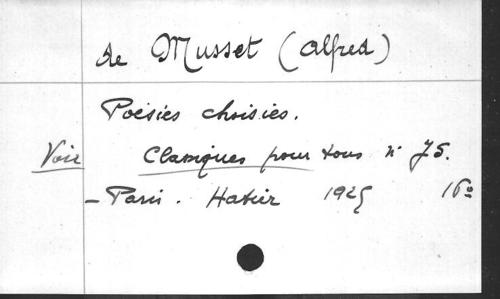 de Musset (Alfred)
Poésies choisies.
Voir Classiques pour tous n° 75.
- Paris. Hatier 1925 16°